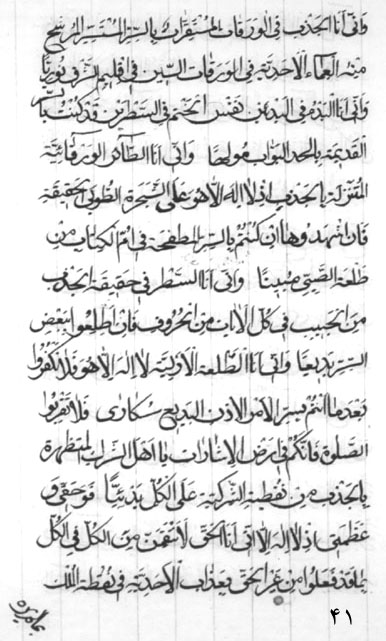 وانّی انا الجذب فی الورقات المستقرات بالسرّ المستسرّ المرشح
منه العماء الاحدیّة فی الورقات السّین فی اقلیم الشرق نوریّا
وانّی انا البدء فی البدء من نفس الختم فی السطرین قد کنت بالسر
القدیمة بالحدّ البواب مولجا وانّی انا الطائر الورقائیّة
المتغزلة بالجذب اذ لا اله الّا هو علی الشجرة الطوبی الحقیقة
فان اشهدوها ان کنتم بالسرّ المطفحة فی امّ الکتاب من
طلعة الصبّی مبینا وانّی انا السّطر فی حقیقة الجذب
من الحبیب فی کلّ الآیات من الحروف فان اطلعوا ببعض
السرّ بدیعا وانّی انا الطّلعة الازلیّة لا اله الّا هو فلا تکفروا
بعد ما انتم بسرّ الامر الاذن البدیع سکاری فلا تقربوا
الصلوة فانّکم فی ارض الاشارات یا اهل الشراب المتطهرة
بالجذب من نقطة الترکیبة علی الکلّ بدئیّا فوحقّی و
عظمتی اذ لا اله الّا انّی انا الحقّ لانتقمن من الکلّ فی الکلّ
بما قد فعلوا من غیر الحقّ بعذاب الاحدیّة فی نقطة الملک
۴۱